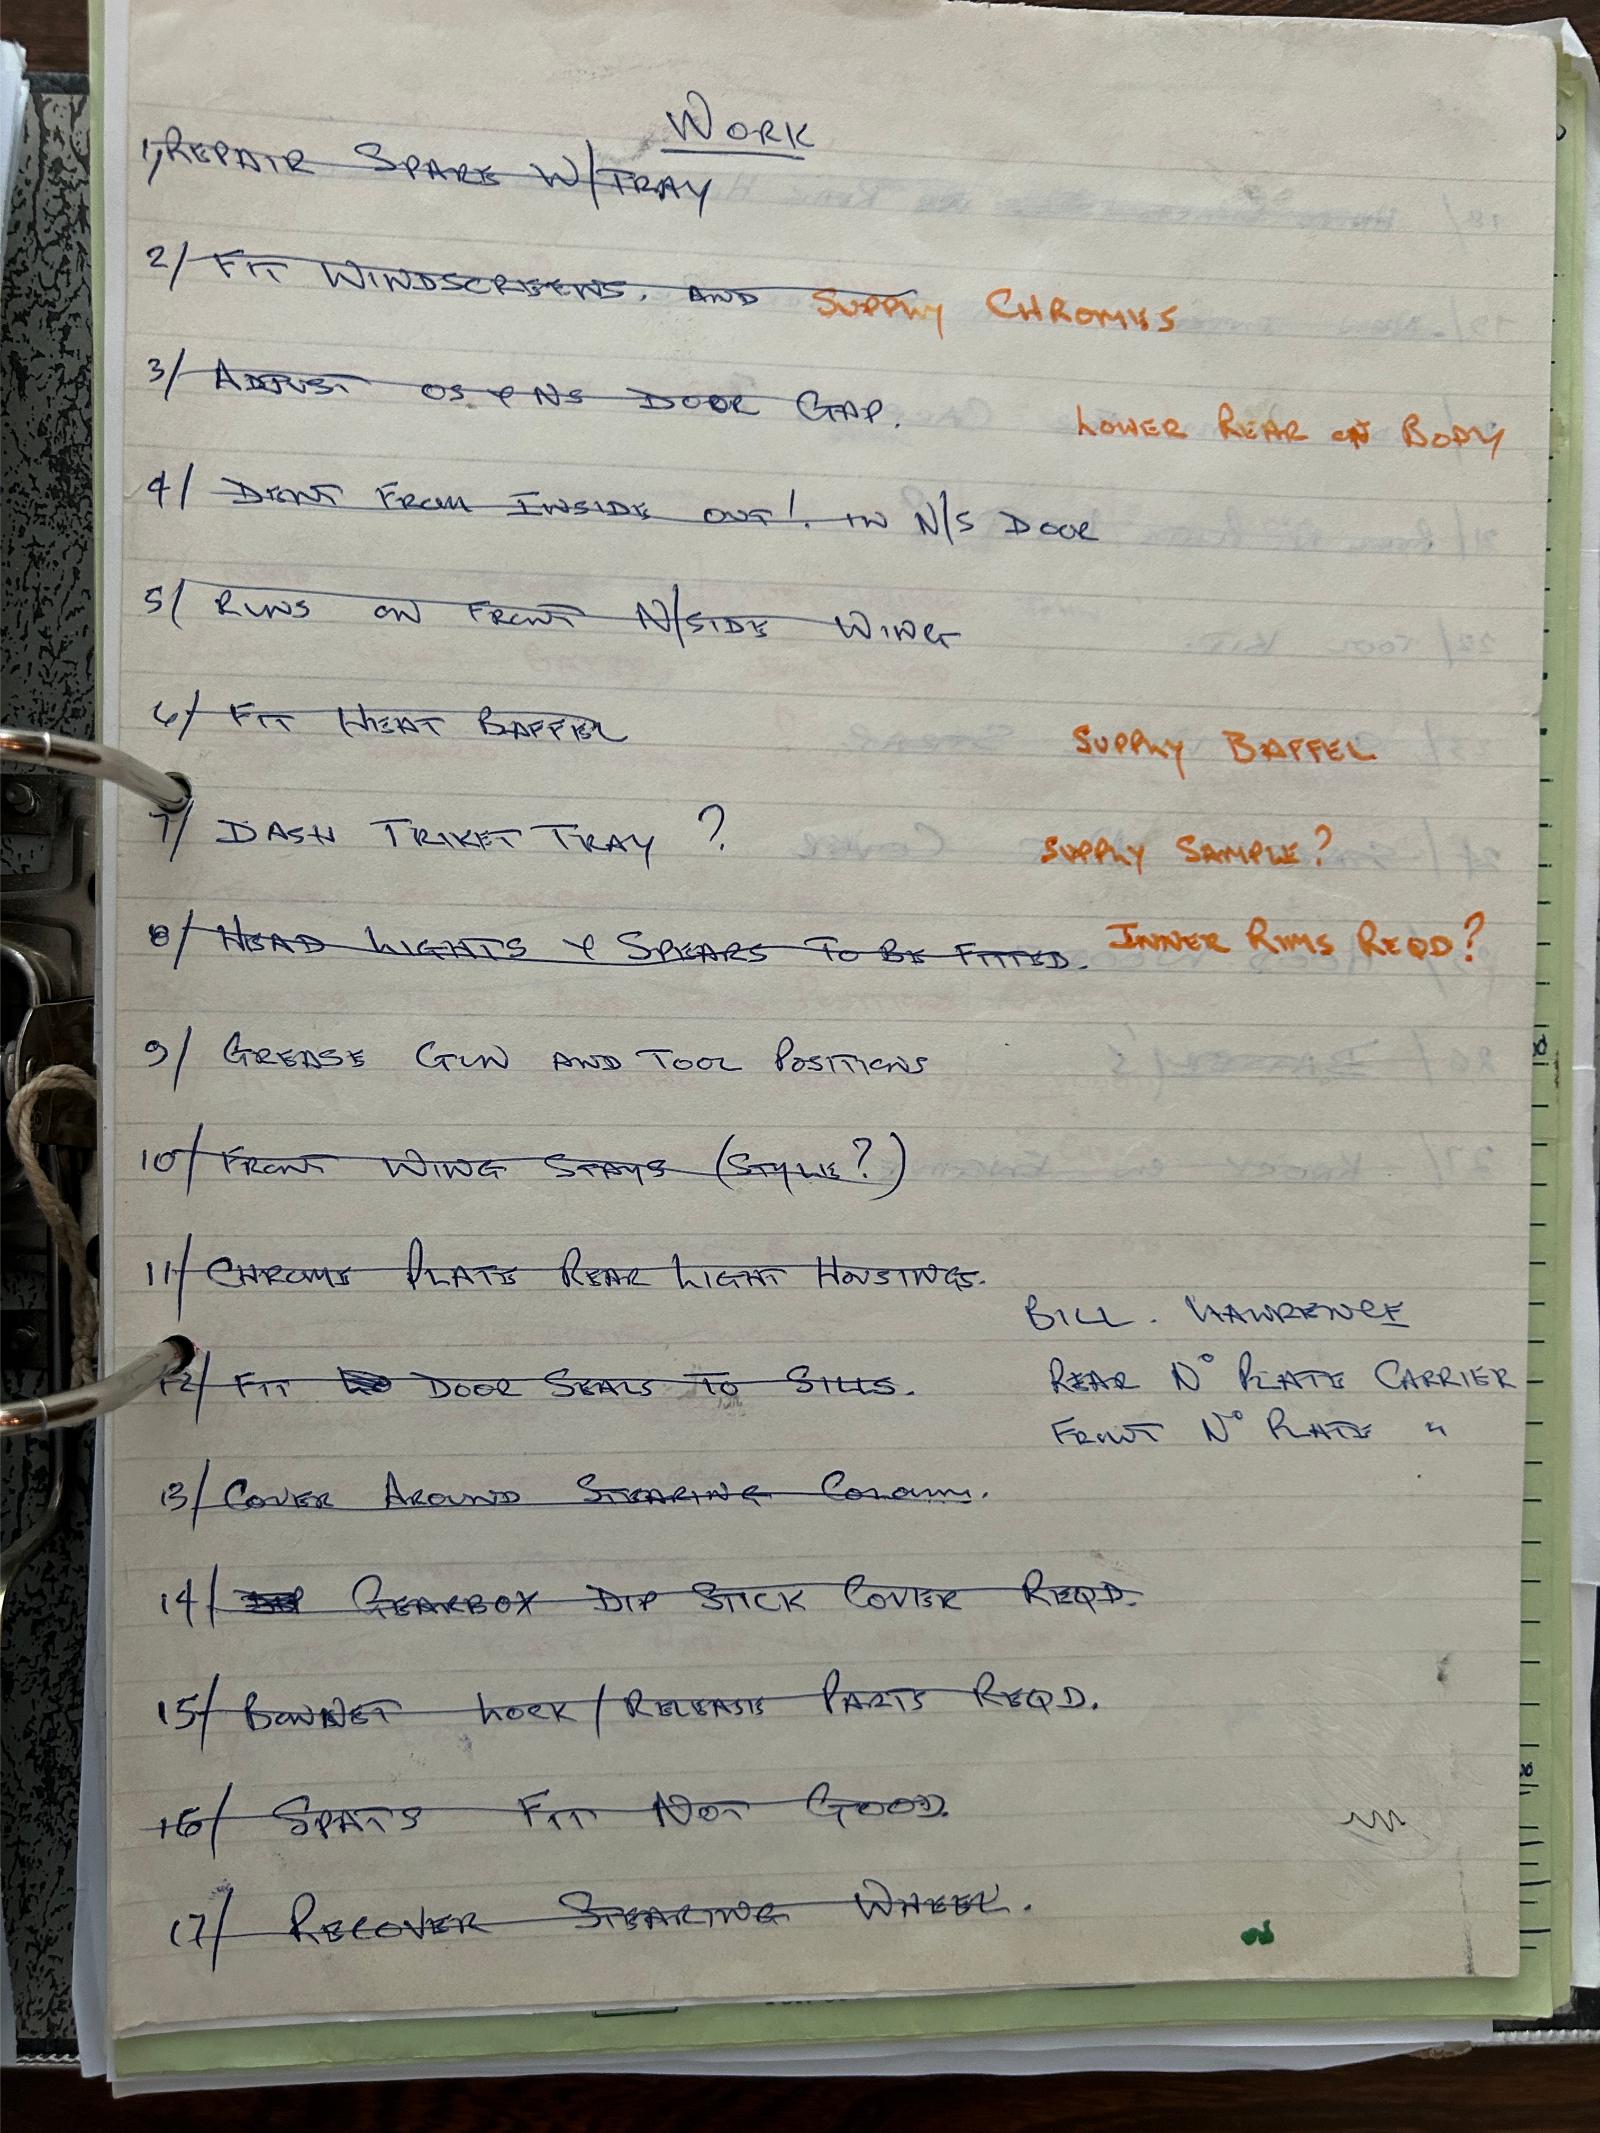 WORK
1) REPAIR SPARE W/TRAY
2/ FIT WINDSCREENS. AND SUPPLY CHROMES
3/ ADJUST OS & NS DOOR GAP. LOWER REAR ON BODY
4/ DENT FROM INSIDE OUT! IN N/S DOOR
5/ RUNS ON FRONT N/SIDE WING
6/ FIT HEAT BAFFER SUPPLY BAFFEL
7/ DASH TRIKET TRAY ? SUPPLY SAMPLE?
8/ HEAD LIGHTS & SPEARS TO BE FITTED. INNER RIMS REQD?
9/ GREASE GUN AND TOOL POSITIONS
10/ FRONT WING STAYS (STYLE?)
11/ CHROME PLATE REAR LIGHT HOUSINGS.
BILL. LAWRENCE
12/ FIT DOOR SEALS TO SILLS. REAR Nº PLATE CARRIER
FRONT Nº PLATE "
13/ COVER AROUND STEARING COLOUM.
14/ GEARBOX DIP STICK COVER REQD.
15/ BONNET LOCK/RELEASE PARTS REQD.
16/ SPATS FIT NOT GOOD.
17/ RECOVER STEARING WHEEL.